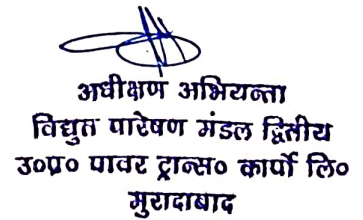 अधीक्षण अभियन्ता
विद्युत पारेषण मंडल द्वितीय
उ०प्र० पावर ट्रान्स० कार्पो लि०
मुरादाबाद